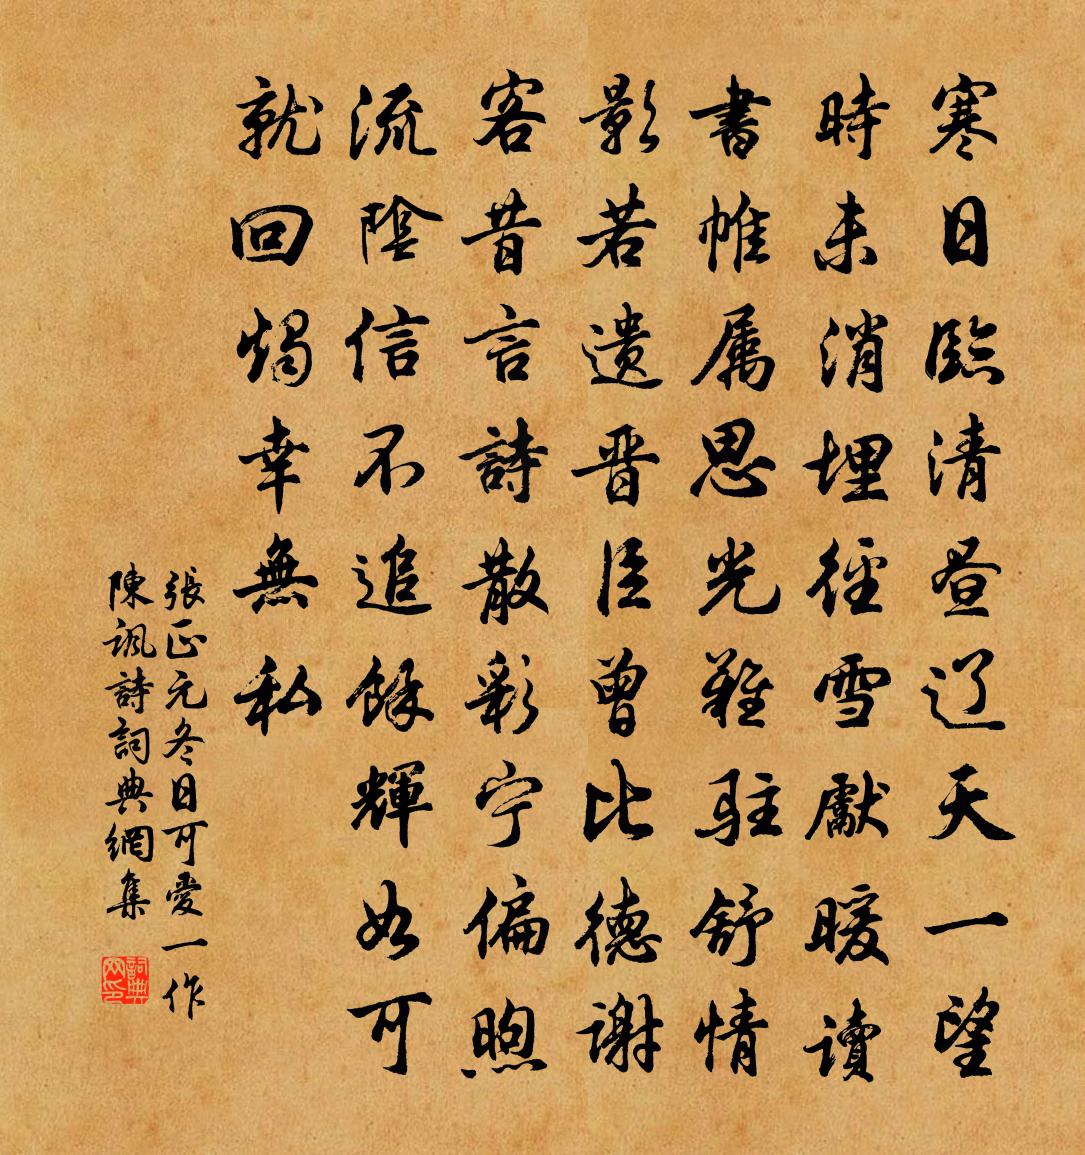 寒日臨清昼辽天一望
時未消埋徑雪獻暖讀
書帷属思光難駐舒情
影若遗晋臣曾比德謝
客昔言詩散彩宁偏煦
流陰信不追餘輝如可
就回燭幸無私
張正元冬日可愛一作
陳諷詩詞典網集
詞典
网印